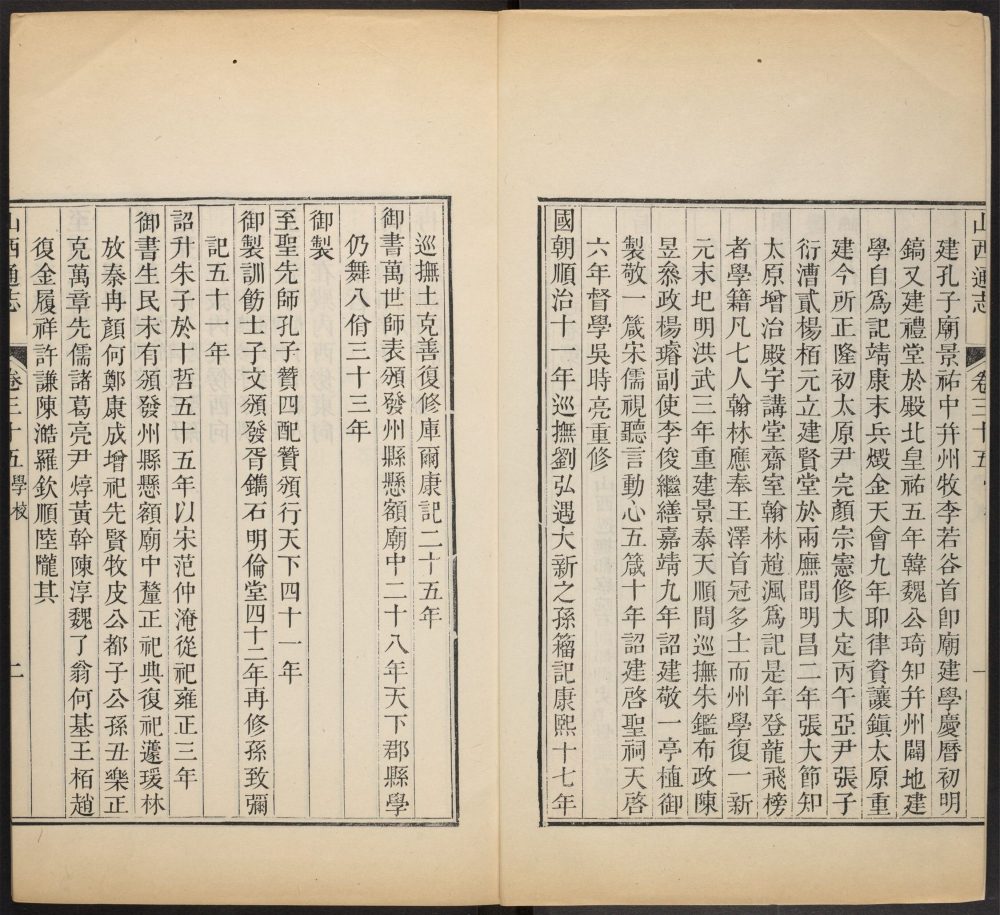 山西通志 卷三十五 一
建孔子廟景祐中幷州牧李若谷首卽廟建學慶曆初明
鎬又建禮堂於殿北皇祐五年韓魏公琦知幷州闢地建
學自爲記靖康末兵燬金天會九年耶律資讓鎭太原重
建今所正隆初太原尹完顏宗憲修大定丙午亞尹張子
衍漕貳楊栢元立建賢堂於兩廡間明昌二年張大節知
太原增治殿宇講堂齋室翰林趙渢爲記是年登龍飛榜
者學籍凡七人翰林應奉王澤首冠多士而州學復一新
元末圮明洪武三年重建景泰天順間巡撫朱鑑布政陳
昱叅政楊璿副使李俊繼繕嘉靖九年詔建敬一亭植御
製敬一箴宋儒視聽言動心五箴十年詔建啓聖祠天啓
六年督學吳時亮重修
國朝順治十一年巡撫劉弘遇大新之孫籀記康熙十七年
巡撫土克善復修庫爾康記二十五年
御書萬世師表頒發州縣懸額廟中二十八年天下郡縣學
仍舞八佾三十三年
御製
至聖先師孔子贊四配贊頒行天下四十一年
御製訓飭士子文頒發胥鐫石明倫堂四十二年再修孫致彌
記五十一年
詔升朱子於十哲五十五年以宋范仲淹從祀雍正三年
御書生民未有頒發州縣懸額廟中釐正祀典復祀蘧瑗林
放秦冉顏何鄭康成增祀先賢牧皮公都子公孫丑樂正
克萬章先儒諸葛亮尹焞黃幹陳淳魏了翁何基王栢趙
復金履祥許謙陳澔羅欽順陸隴其
山西通志 卷三十五 學校 二